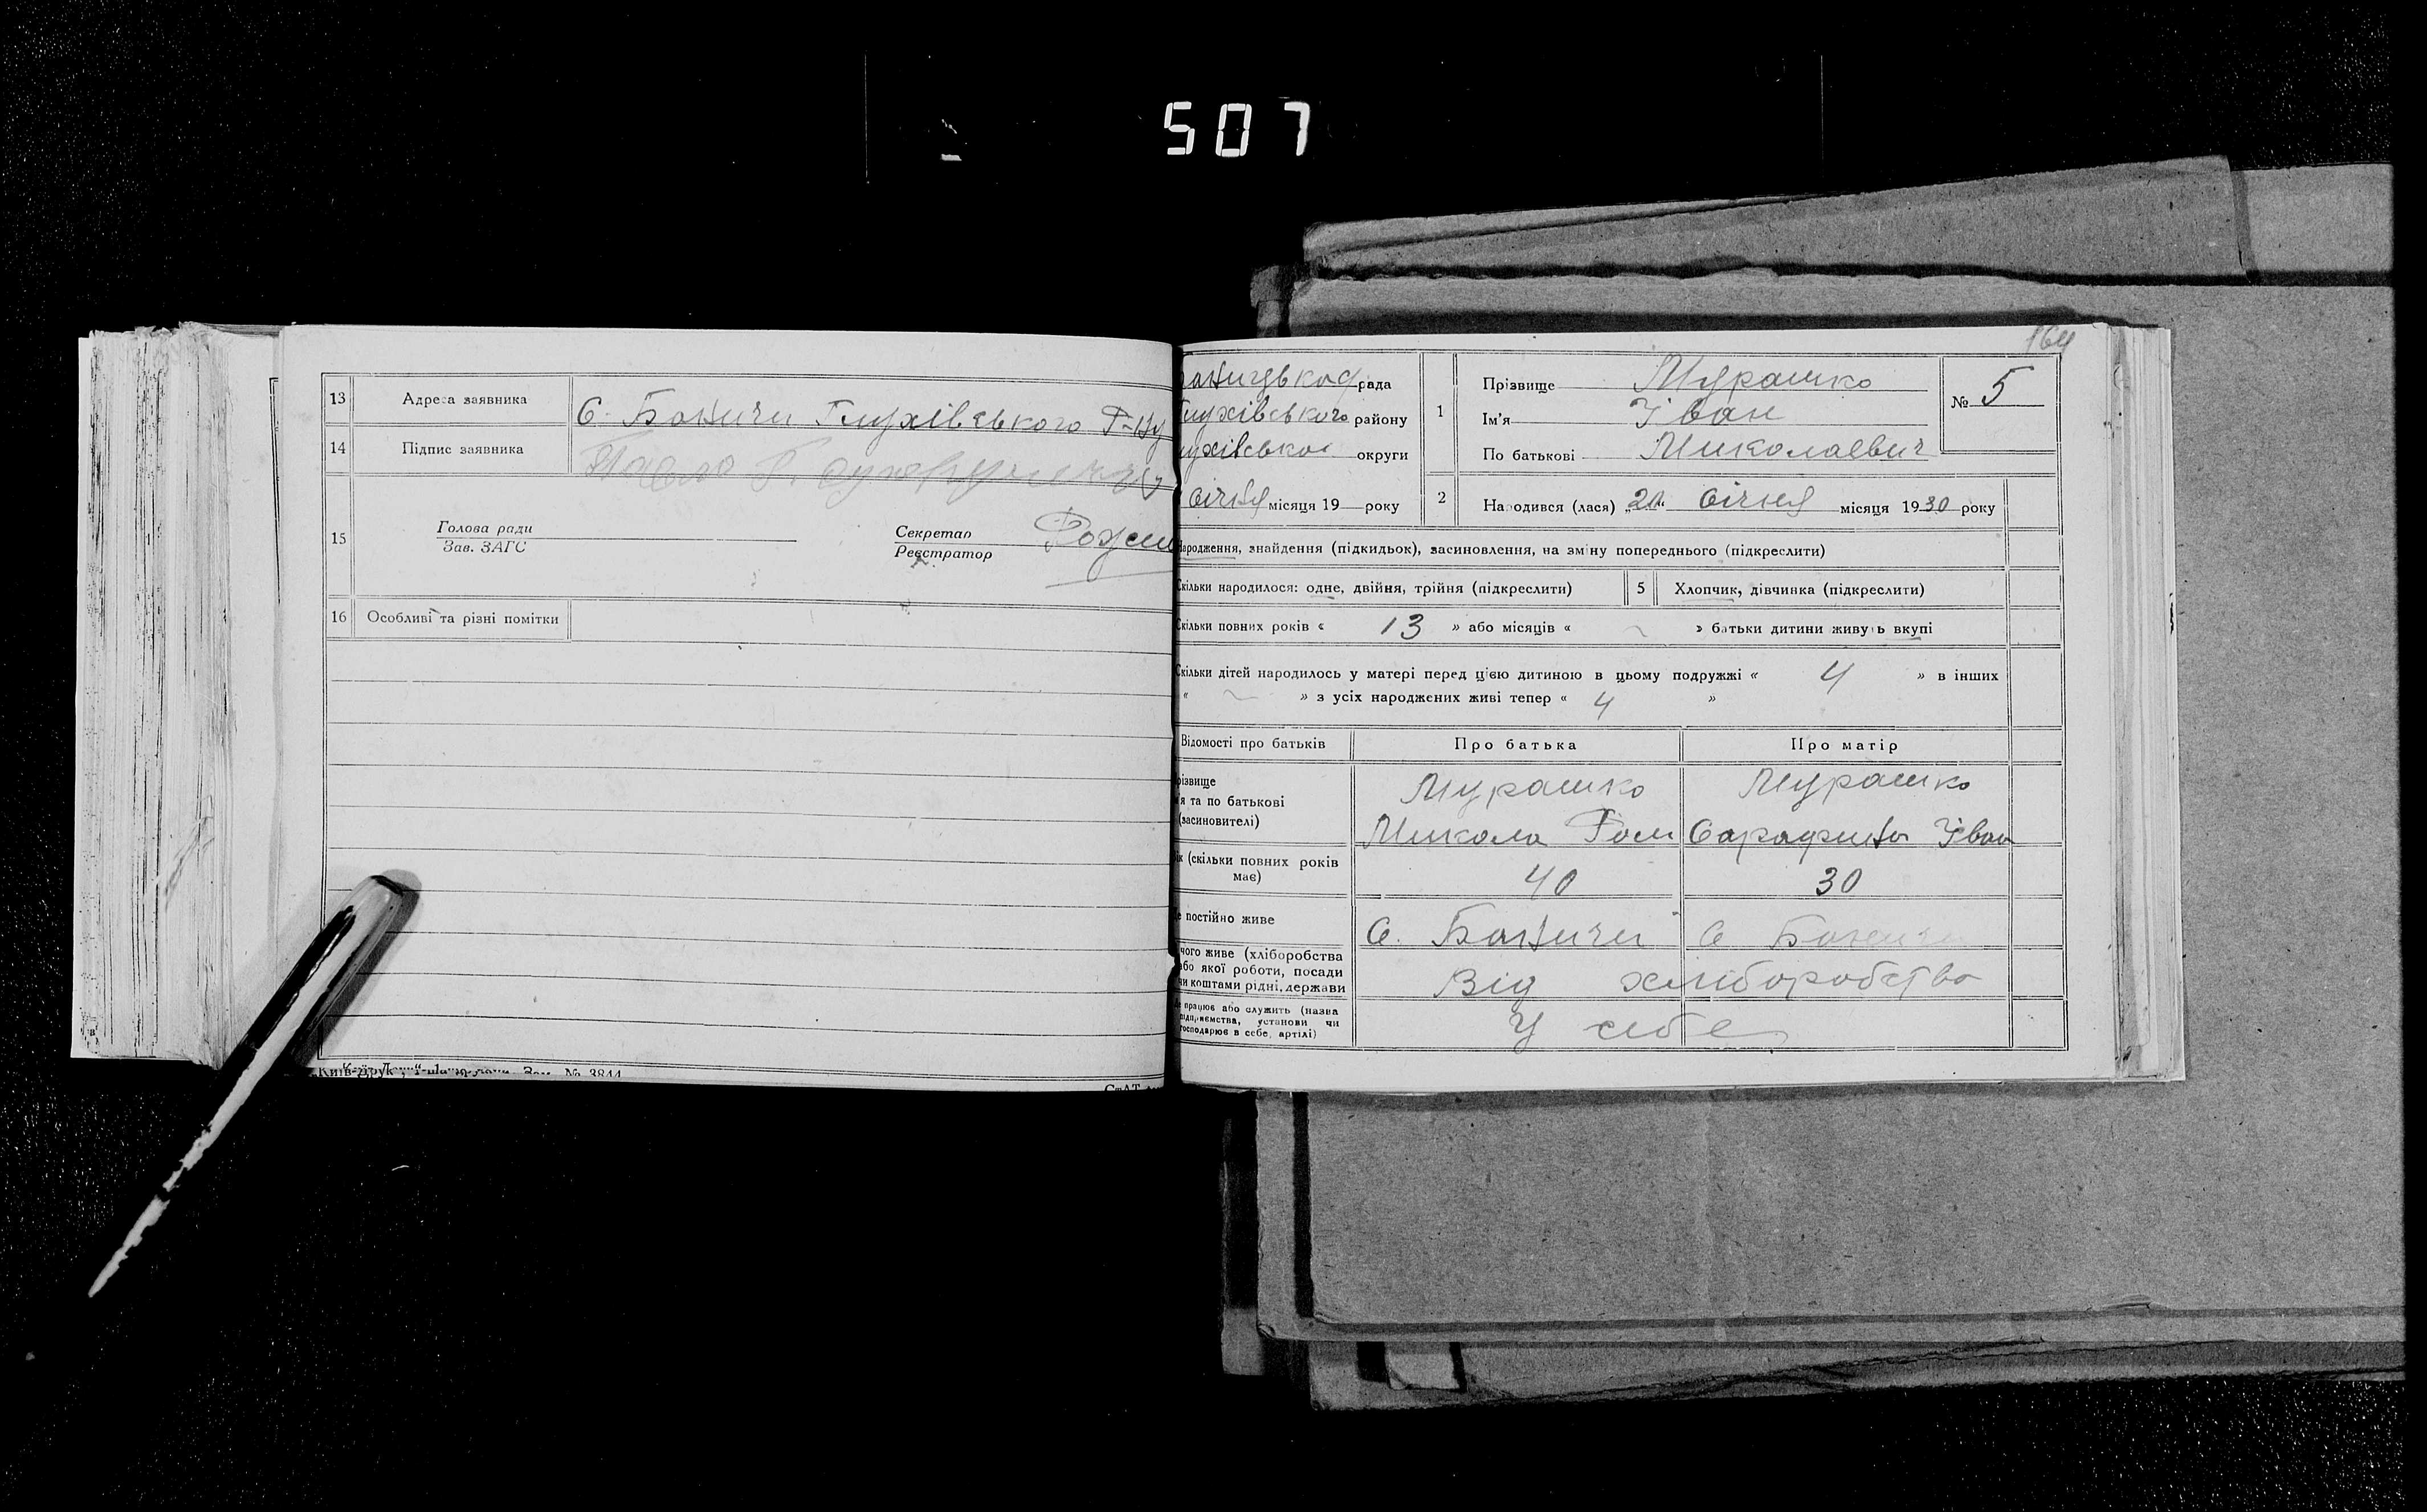 507
13 Адреса заявника С. Баничи Глухівського Р-ну
14 Підпис заявника
15 Голова ради
Зав. ЗАГС
Секретар
Реєстратор
16 Особливі та різні помітки
Зам. № 3844
164
аницька рада
Глухівського району
лухівської округи
січня місяця 19 року
1 Прізвище Мурашко
Ім'я Іван
По батькові Миколаєвич
№ 5
2 Народився (лася) „ “ січня місяця 1930 року
народження, знайдення (підкидьок), засиновлення, на зміну попереднього (підкреслити)
Скільки народилося: одне, двійня, трійня (підкреслити) 5 Хлопчик, дівчинка (підкреслити)
Скільки повних років « 13 » або місяців « ~ » батьки дитини живуть вкупі
Скільки дітей народилось у матері перед цією дитиною в цьому подружжі « 4 » в інших
« ~ » з усіх народжених живі тепер « 4 »
Відомості про батьків Про батька Про матір
різвище Мурашко Мурашко
'я та по батькові
(засиновителі) Микола Ром Сарафина Іван
ік (скільки повних років
має) 40 30
е постійно живе С. Баничи С Баничи
чого живе (хліборобства
або якої роботи, посади
чи коштами рідні, держави Від хліборобства
працює або служить (назва
підприємства, установи чи
господарює в себе, артілі) У себе